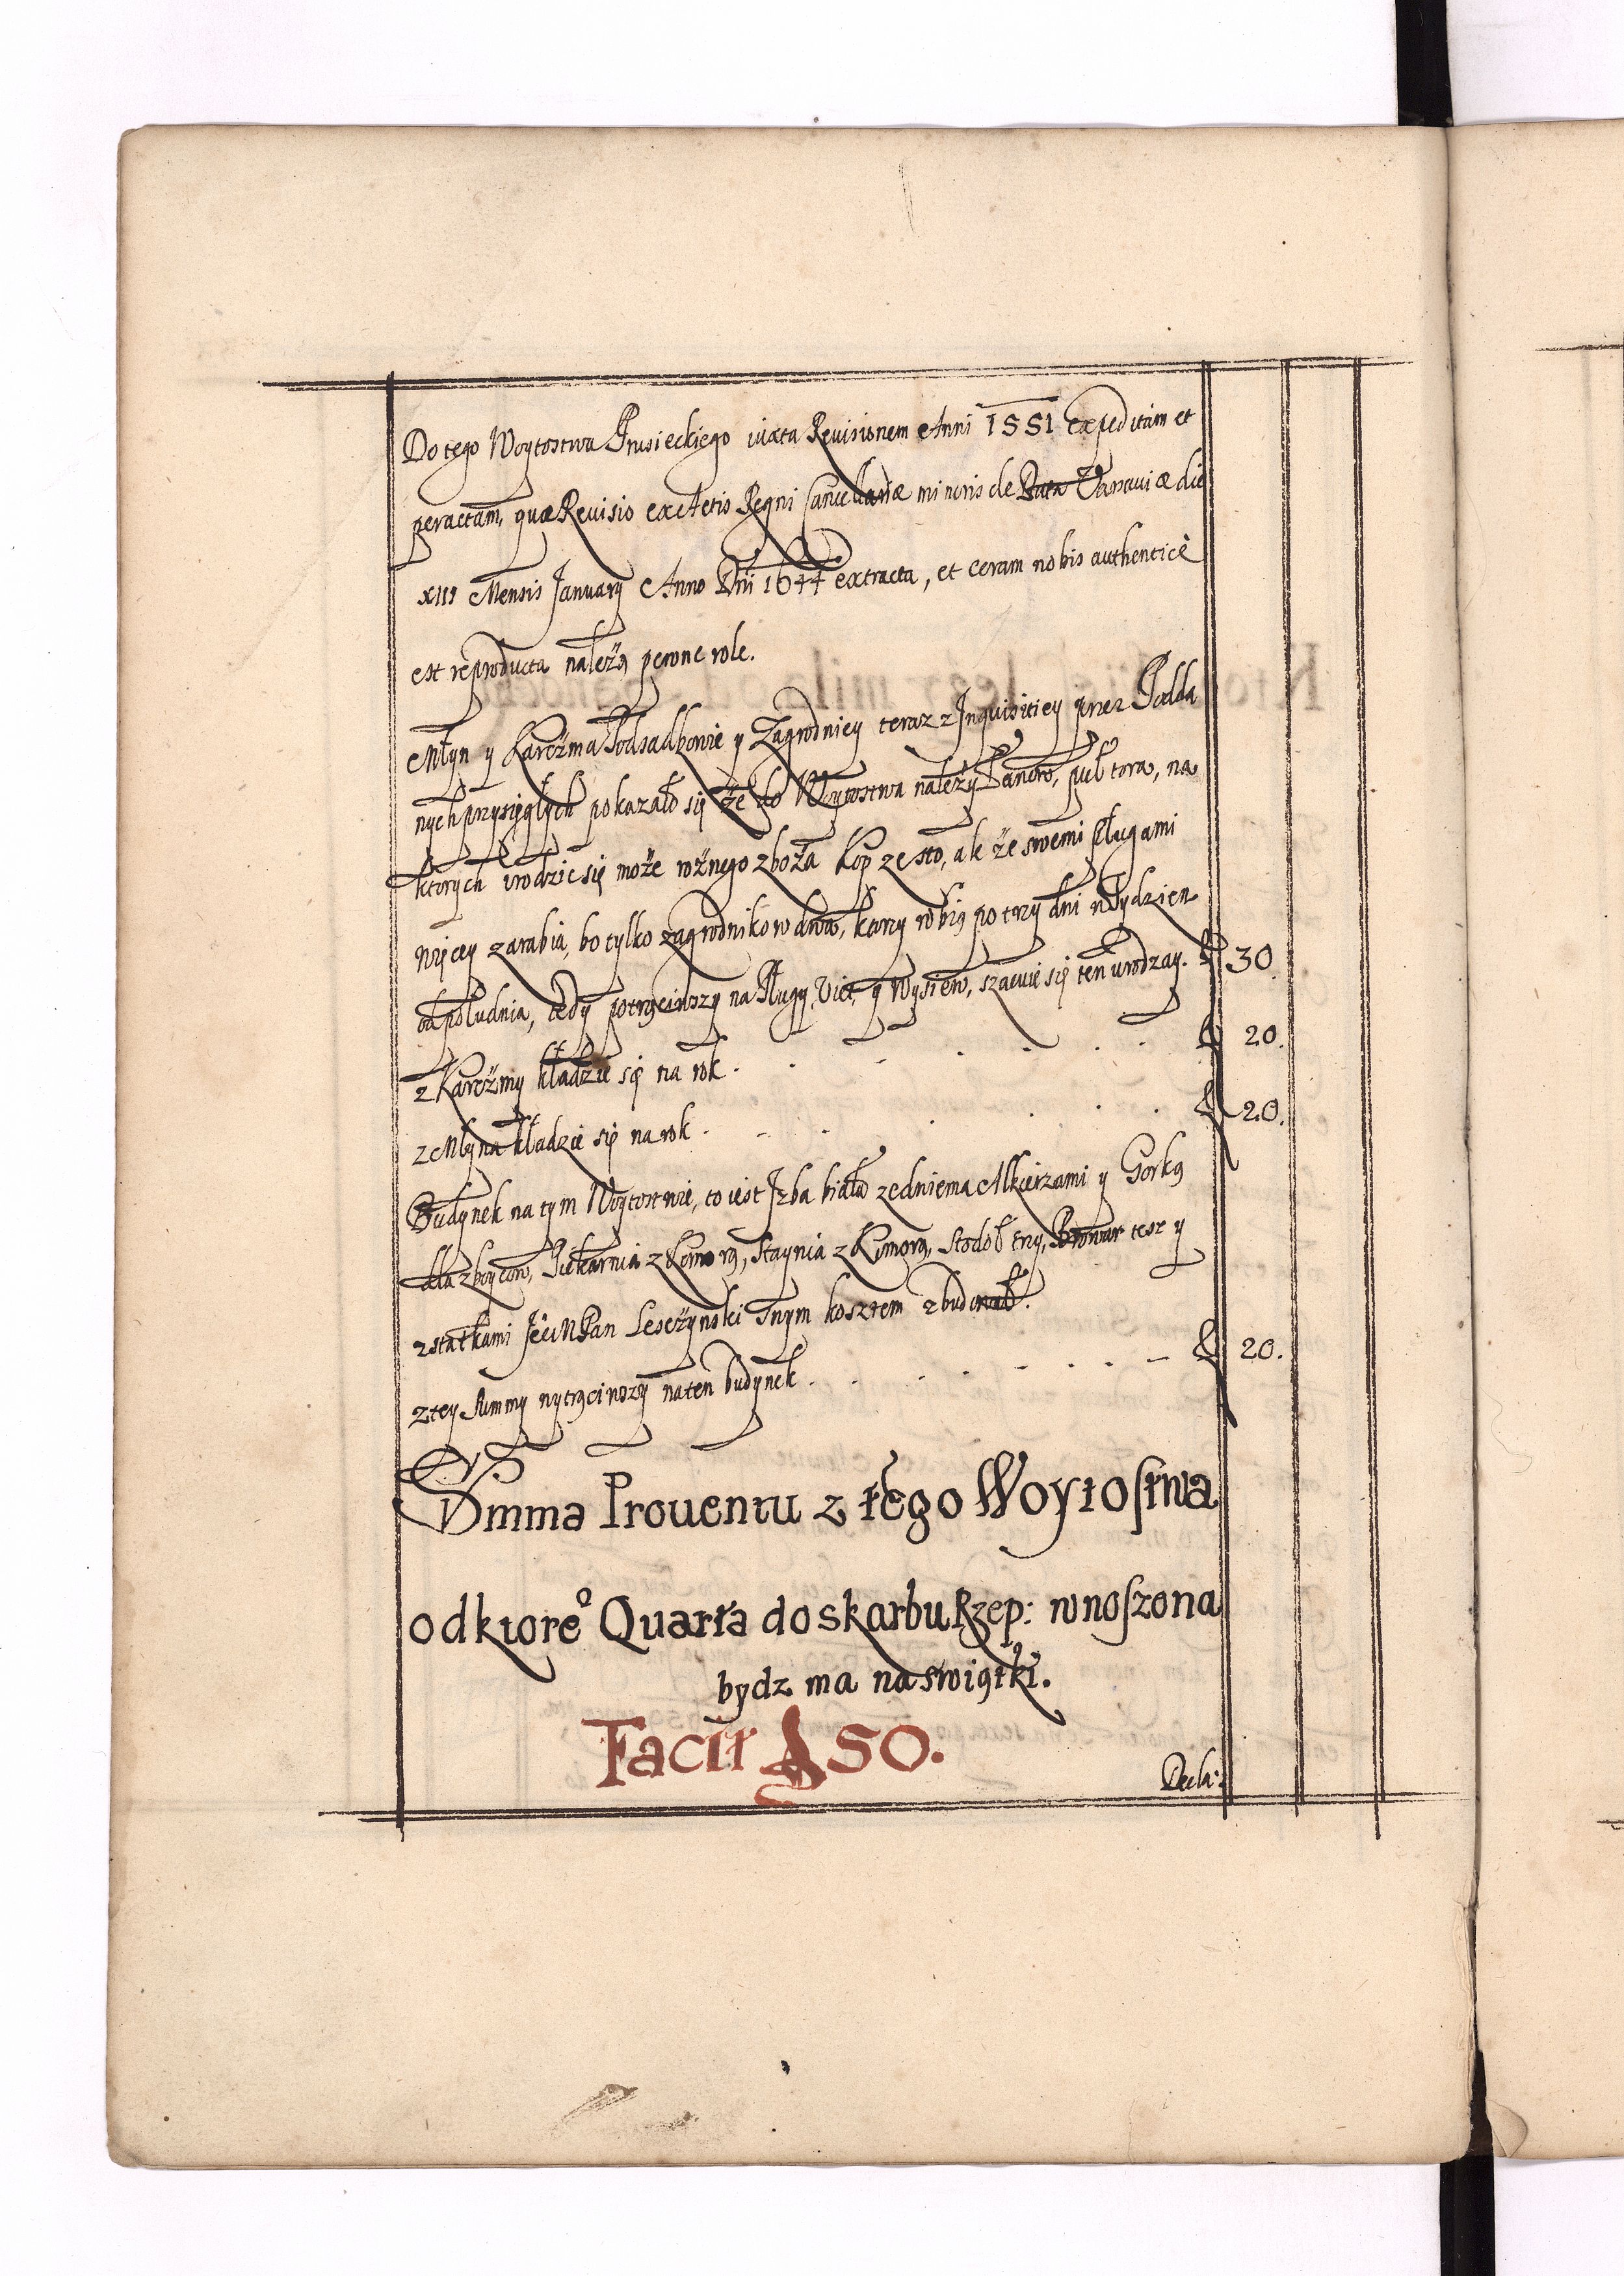 Do tego Woytostwa Prusieckiego iuxta Reuisionem Anni 1551 expeditam et
peractam, quæ Reuisio ex Actis Regni Cancellariæ minoris de Data Varsauiæ die
XIII Mensis January Anno Dni 1644 extracta, et coram nobis authenticè
est reproducta należą pewne role.
Młyn y Karczma Podsadkowie y Zagrodnicy teraz z Inquisitiey przez Podda
nych przysięgłych pokazało się że do Woytostwa należy Łanow, pułtora, na
ktorych vrodzic się może rożnego zboża kop ze sto, ale że swemi Pługami
więcey zarabia, bo tylko zagrodnikow dwa, ktorzy robią po trzy dni w Tydzien
od południa, tedy potrąciwszy na Pługi, Vict, y Wysiew, szacuie się ten urodzay. fl 30.
z Karczmy kładzie się na rok . . . . . . fl 20.
z Młyna kładzie się na rok . . . . . . fl 20.
Budynek na tym Woytostwie, to iest Izba biała ze dwiema Alkierzami y Gorką
dla zboycow, Piekarnia z Komorą, Staynia z Komorą, Stodoł trzy, Browar tesz y
z statkami Jeo Mć Pan Leszczynski swym kosztem zbudował.
z tey Summy wytrąciwszy na ten budynek . . . . . . fl 20.
Summa Prouentu z tego Woytostwa
od ktoreo Quarta do skarbu Rzep: wnoszona
bydz ma na swiątki.
Facit fl 50.
Decla: